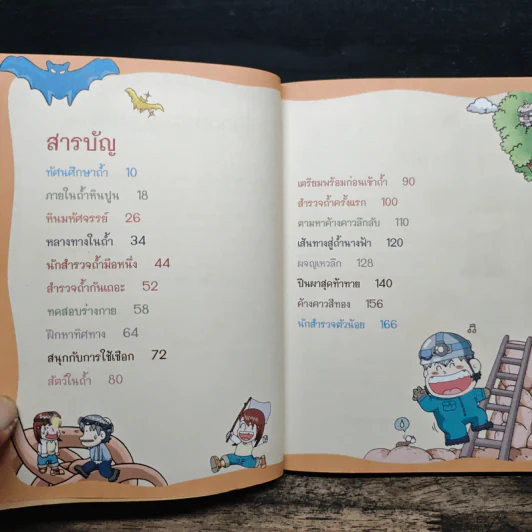 สารบัญ
ทัศนศึกษาถ้ำ 10
ภายในถ้ำหินปูน 18
หินมหัศจรรย์ 26
หลางทางในถ้ำ 34
นักสำรวจถ้ำมือหนึ่ง 44
สำรวจถ้ำกันเถอะ 52
ทดสอบร่างกาย 58
ฝึกหาทิศทาง 64
สนุกกับการใช้เชือก 72
สัตว์ในถ้ำ 80
เตรียมพร้อมก่อนเข้าถ้ำ 90
สำรวจถ้ำครั้งแรก 100
ตามหาค้างคาวลึกลับ 110
เส้นทางสู่ถ้ำนางฟ้า 120
ผจญเหวลึก 128
ปีนผาสุดท้าทาย 140
ค้างคาวสีทอง 156
นักสำรวจตัวน้อย 166